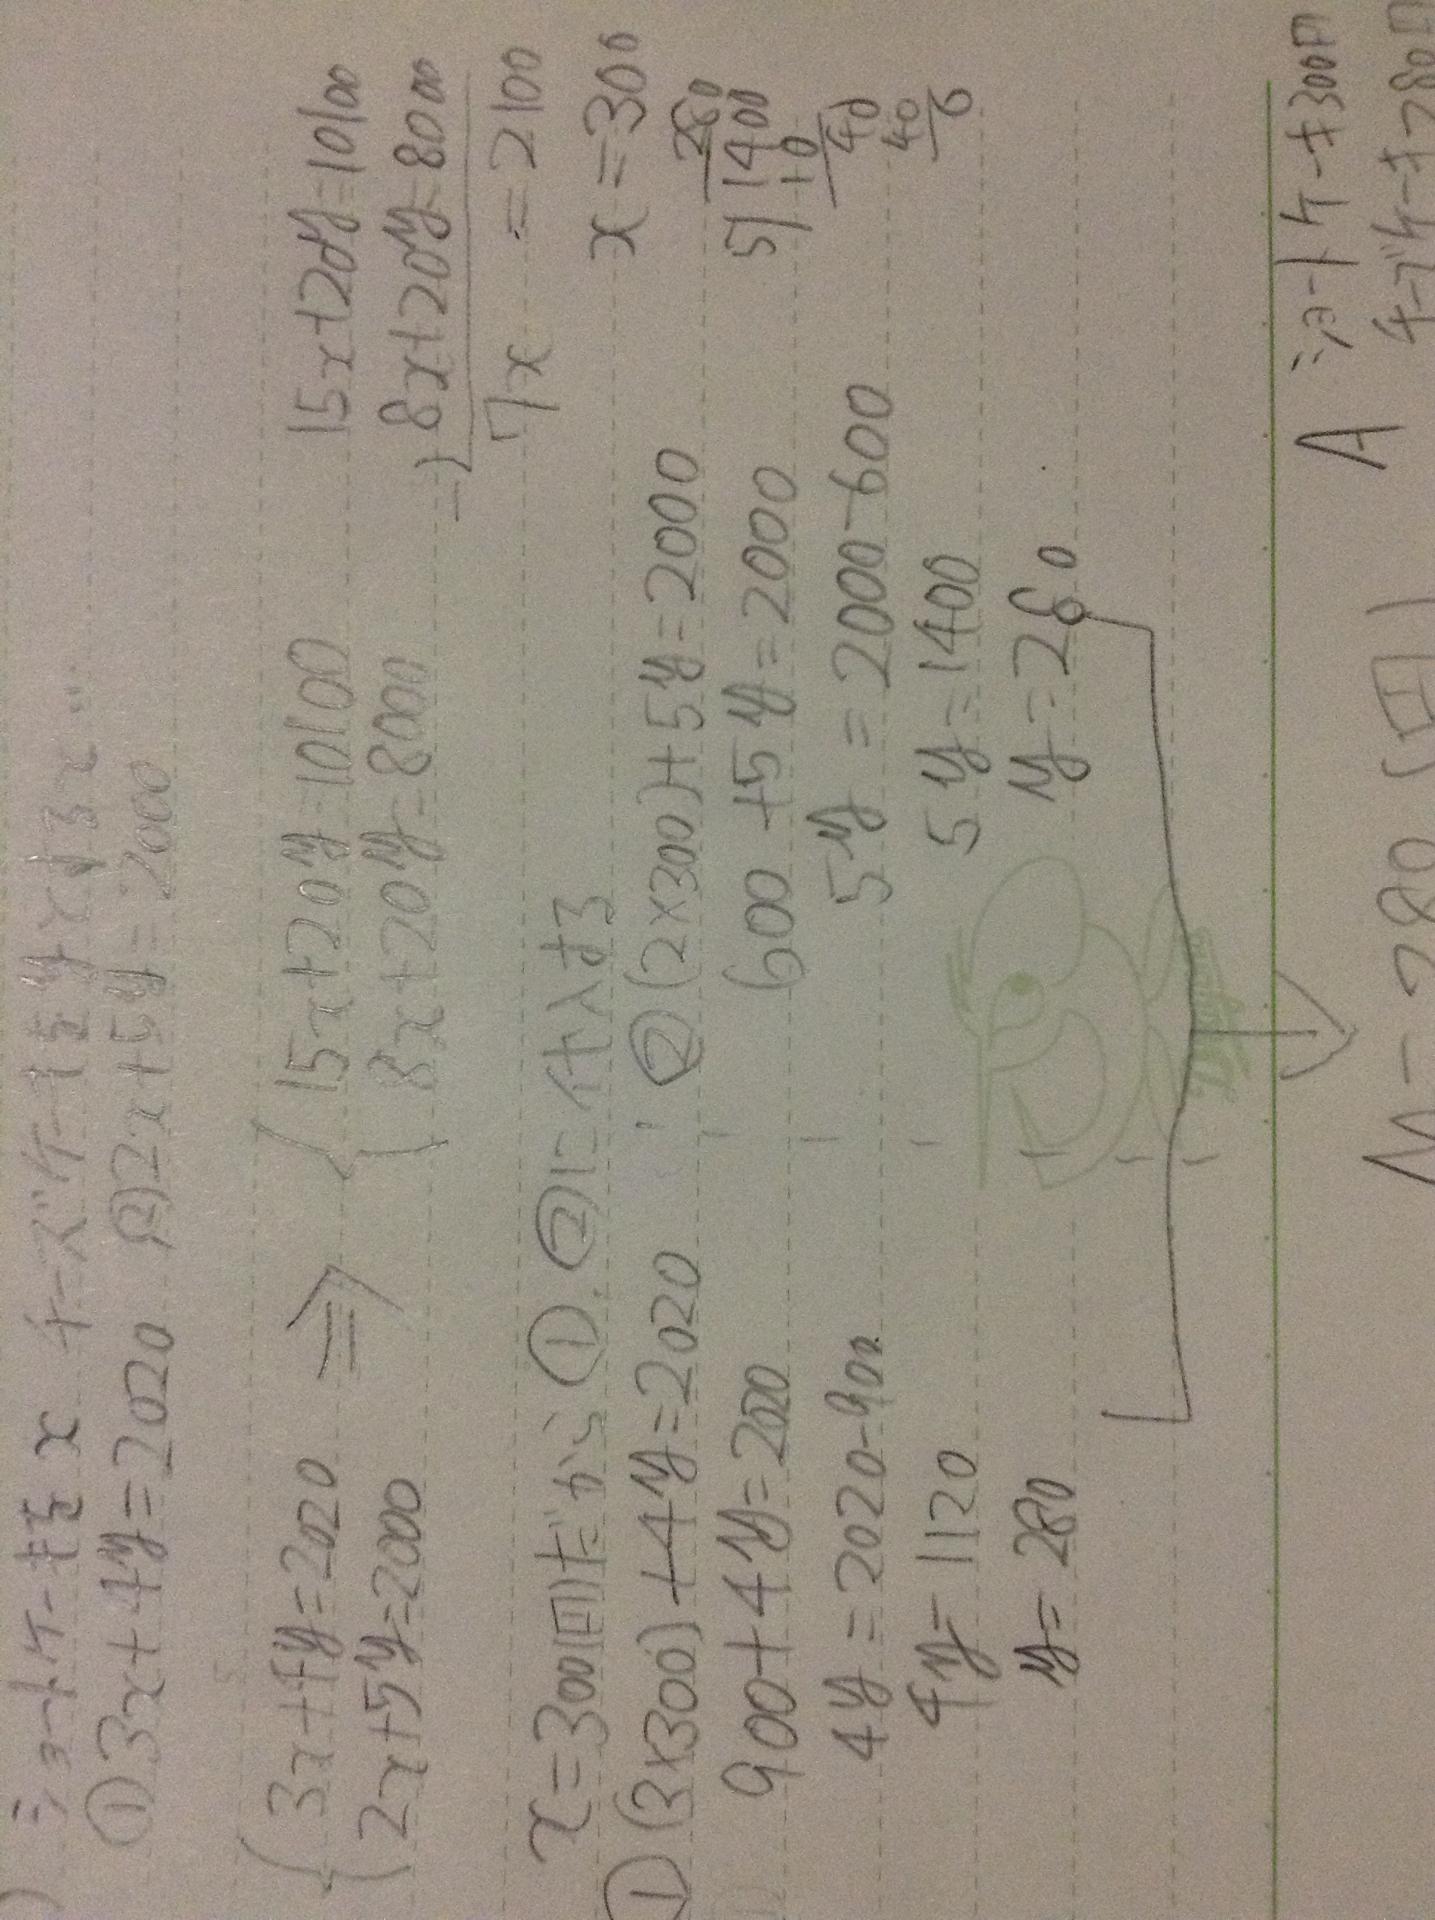 ショートケーキを x チーズケーキを y とする
① 3x+4y=2020 ② 2x+5y=2000
{ 3x+4y=2020
2x+5y=2000
⇒
{ 15x+20y=10100
8x+20y=8000
15x+20y=10100
-) 8x+20y=8000
7x =2100
x=300
x=300(円)だから ①.②に代入する
① (3×300)+4y=2020
900+4y=2020
4y=2020-900
4y=1120
y=280
② (2×300)+5y=2000
600+5y=2000
5y=2000-600
5y=1400
y=280
280
5)1400
10
40
40
0
y=280(円)
A ショートケーキ300円
チーズケーキ280円